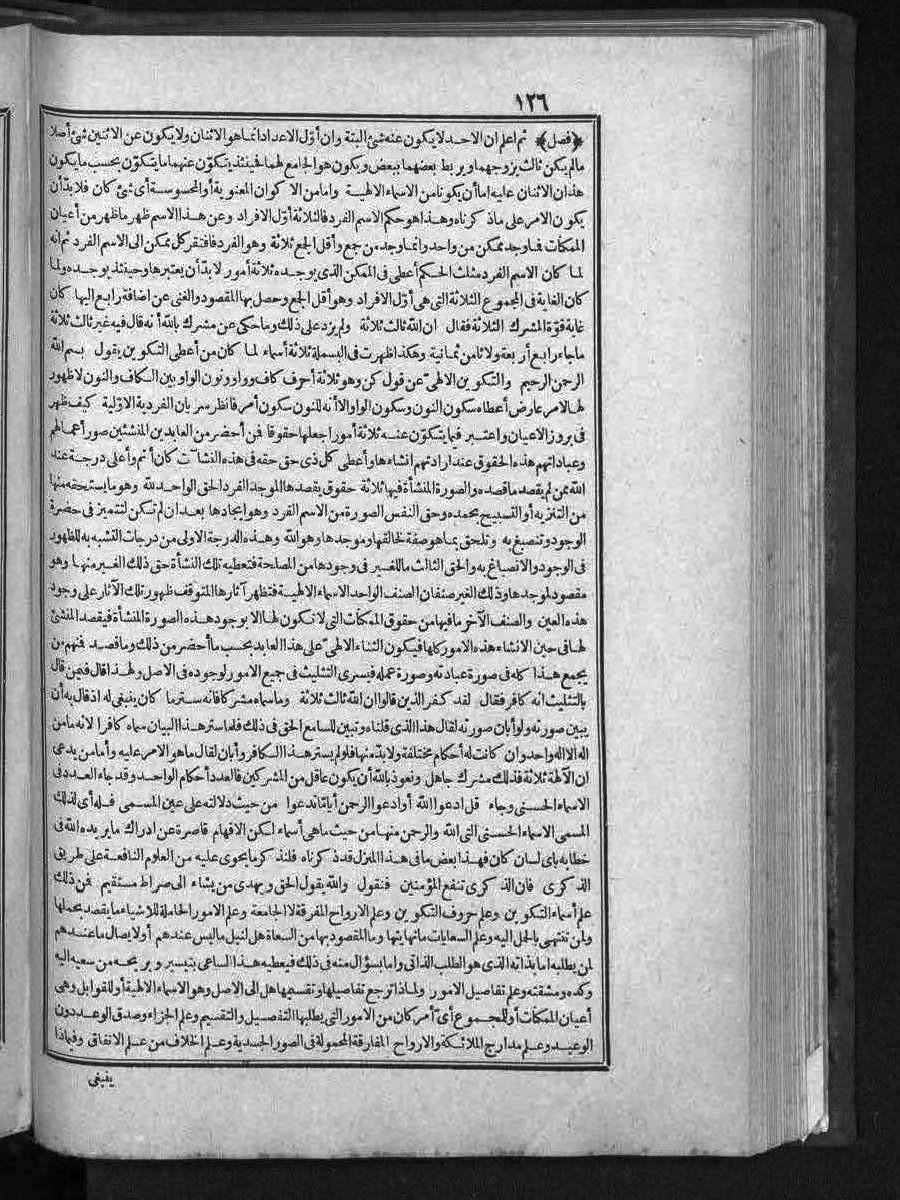 ١٢٦
﴿فصل﴾ ثم اعلم ان الاحد لا يكون عنه شئ البتة وان أوّل الاعداد انما هو الاثنان ولا يكون عن الاثنين شئ أصلا
مالم يكن ثالث يزوجهما ويربط بعضهما ببعض ويكون هو الجامع لهما فحينئذ يتكوّن عنهما ما يتكوّن بحسب ما يكون
هذان الاثنان عليه اما أن يكونا من الاسماء الالهية واما من الاكوان المعنوية أو المحسوسة أى شئ كان فلا بدّ أن
يكون الامر على ماذكرناه وهذا هو حكم الاسم الفرد فالثلاثة أوّل الافراد وعن هذا الاسم ظهر ما ظهر من أعيان
الممكنات فما وجد ممكن من واحد وانما وجد من جمع وأقل الجمع ثلاثة وهو الفرد فافتقر كل ممكن الى الاسم الفرد ثم انه
لما كان الاسم الفرد مثلث الحكم أعطى فى الممكن الذى يوجده ثلاثة أمور لا بدّ أن يعتبرها وحينئذ يوجده ولما
كان الغاية فى المجموع الثلاثة التى هى أوّل الافراد وهو أقل الجمع وحصل بها المقصود والغنى عن اضافة رابع اليها كان
غاية قوّة المشرك الثلاثة فقال ان الله ثالث ثلاثة ولم يزد على ذلك وما حكى عن مشرك بالله أنه قال فيه غير ثالث ثلاثة
ماجاء رابع أربعة ولا ثامن ثمانية وهكذا ظهرت فى البسملة ثلاثة أسماء لما كان من أعطى التكوين يقول بسم الله
الرحمن الرحيم والتكوين الالهىّ عن قول كن وهو ثلاثة أحرف كاف وواو ونون الواو بين الكاف والنون لا ظهور
لها لامر عارض أعطاه سكون النون وسكون الواو الا أنه للنون سكون أمر فانظر سريان الفردية الاوّلية كيف ظهر
فى بروز الاعيان واعتبر فيما يتكوّن عنه ثلاثة أمور اجعلها حقوقا فمن أحضر من العابدين المنشئين صور أعمالهم
وعباداتهم هذه الحقوق عند ارادتهم انشاءها وأعطى كل ذى حق حقه فى هذه النشآت كان أتم وأعلى درجة عند
الله ممن لم يقصد ما قصده والصورة المنشأة فيها ثلاثة حقوق يقصدها الموجد الفرد الحق الواحد لله وهو ما يستحقه منها
من التنزيه أو التسبيح بحمده وحق النفس الصورة من الاسم الفرد وهو ايجادها بعد ان لم تكن لتتميز فى حضرة
الوجود وتنصبغ به وتلحق بما هو صفة لخالقها وموجدها وهو الله وهذه الدرجة الاولى من درجات التشبه به للظهور
فى الوجود والانصباغ به والحق الثالث ما للغير فى وجودها من المصلحة فتعطيه تلك النشأة حق ذلك الغير منها وهو
مقصود لموجدها وذلك الغير صنفان الصنف الواحد الاسماء الالهية فتظهر آثارها المتوقف ظهور تلك الآثار على وجود
هذه العين والصنف الآخر ما فيها من حقوق الممكنات التى لا تكون لها الا بوجود هذه الصورة المنشأة فيقصد المنشئ
لها فى حين الانشاء هذه الامور كلها فيكون الثناء الالهىّ على هذا العابد بحسب ما أحضر من ذلك وما قصد فمنهم من
يجمع هذا كله فى صورة عبادته وصورة عمله فيسرى التثليث فى جميع الامور لوجوده فى الاصل ولهذا قال فيمن قال
بالتثليث انه كافر فقال لقد كفر الذين قالوا ان الله ثالث ثلاثة وما سماه مشركا فانه ستر ما كان ينبغى له اذ قال به أن
يبين صورته ولو أبان صورته لقال هذا الذى قلناه وتبين للسامع الحق فى ذلك فلما ستر هذا البيان سماه كافرا لانه ما من
اله الا اله واحد وان كانت له أحكام مختلفة ولا بدّ منها فلو لم يستر هذا الكافر وأبان لقال ما هو الامر عليه وأما من يدعى
ان الآلهة ثلاثة فذلك مشرك جاهل ونعوذ بالله أن يكون عاقل من المشركين فالعدد أحكام الواحد وقد جاء العدد فى
الاسماء الحسنى وجاء قل ادعوا الله أو ادعوا الرحمن أيا ما تدعوا من حيث دلالته على عين المسمى فله أى لذلك
المسمى الاسماء الحسنى التى الله والرحمن منها من حيث ما هى أسماء لكن الافهام قاصرة عن ادراك ما يريده الله فى
خطابه باى لسان كان فهذا بعض ما فى هذا المنزل قد ذكرناه فلنذكر ما يحوى عليه من العلوم النافعة على طريق
الذكرى فان الذكرى تنفع المؤمنين فنقول والله يقول الحق ويهدى من يشاء الى صراط مستقيم فمن ذلك
علم أسماء التكوين وعلم حروف التكوين وعلم الارواح المفرقة لا الجامعة وعلم الامور الحاملة للاشياء ما يقصد بحملها
ولمن تنتهى بالحمل اليه وعلم السعايات ما نهايتها وما المقصود بها من السعاة هل لنيل ما ليس عندهم أو لايصال ما عندهم
لمن يطلبه اما بذاته الذى هو الطلب الذاتى واما بسؤال منه فى ذلك فيعطيه هذا الساعى بتيسير ويريحه من سعيه اليه
وكده ومشقته وعلم تفاصيل الامور ولماذا ترجع تفاصيلها وتقسيمها هل الى الاصل وهو الاسماء الالهية أو للقوابل وهى
أعيان الممكنات أو للمجموع أى أمر كان من الامور التى يطلبها التفصيل والتقسيم وعلم الجزاء وصدق الوعد دون
الوعيد وعلم مدارج الملائكة والارواح المفارقة المحمولة فى الصور الجسدية وعلم الخلاف من علم الاتفاق وفيماذا
ينبغى